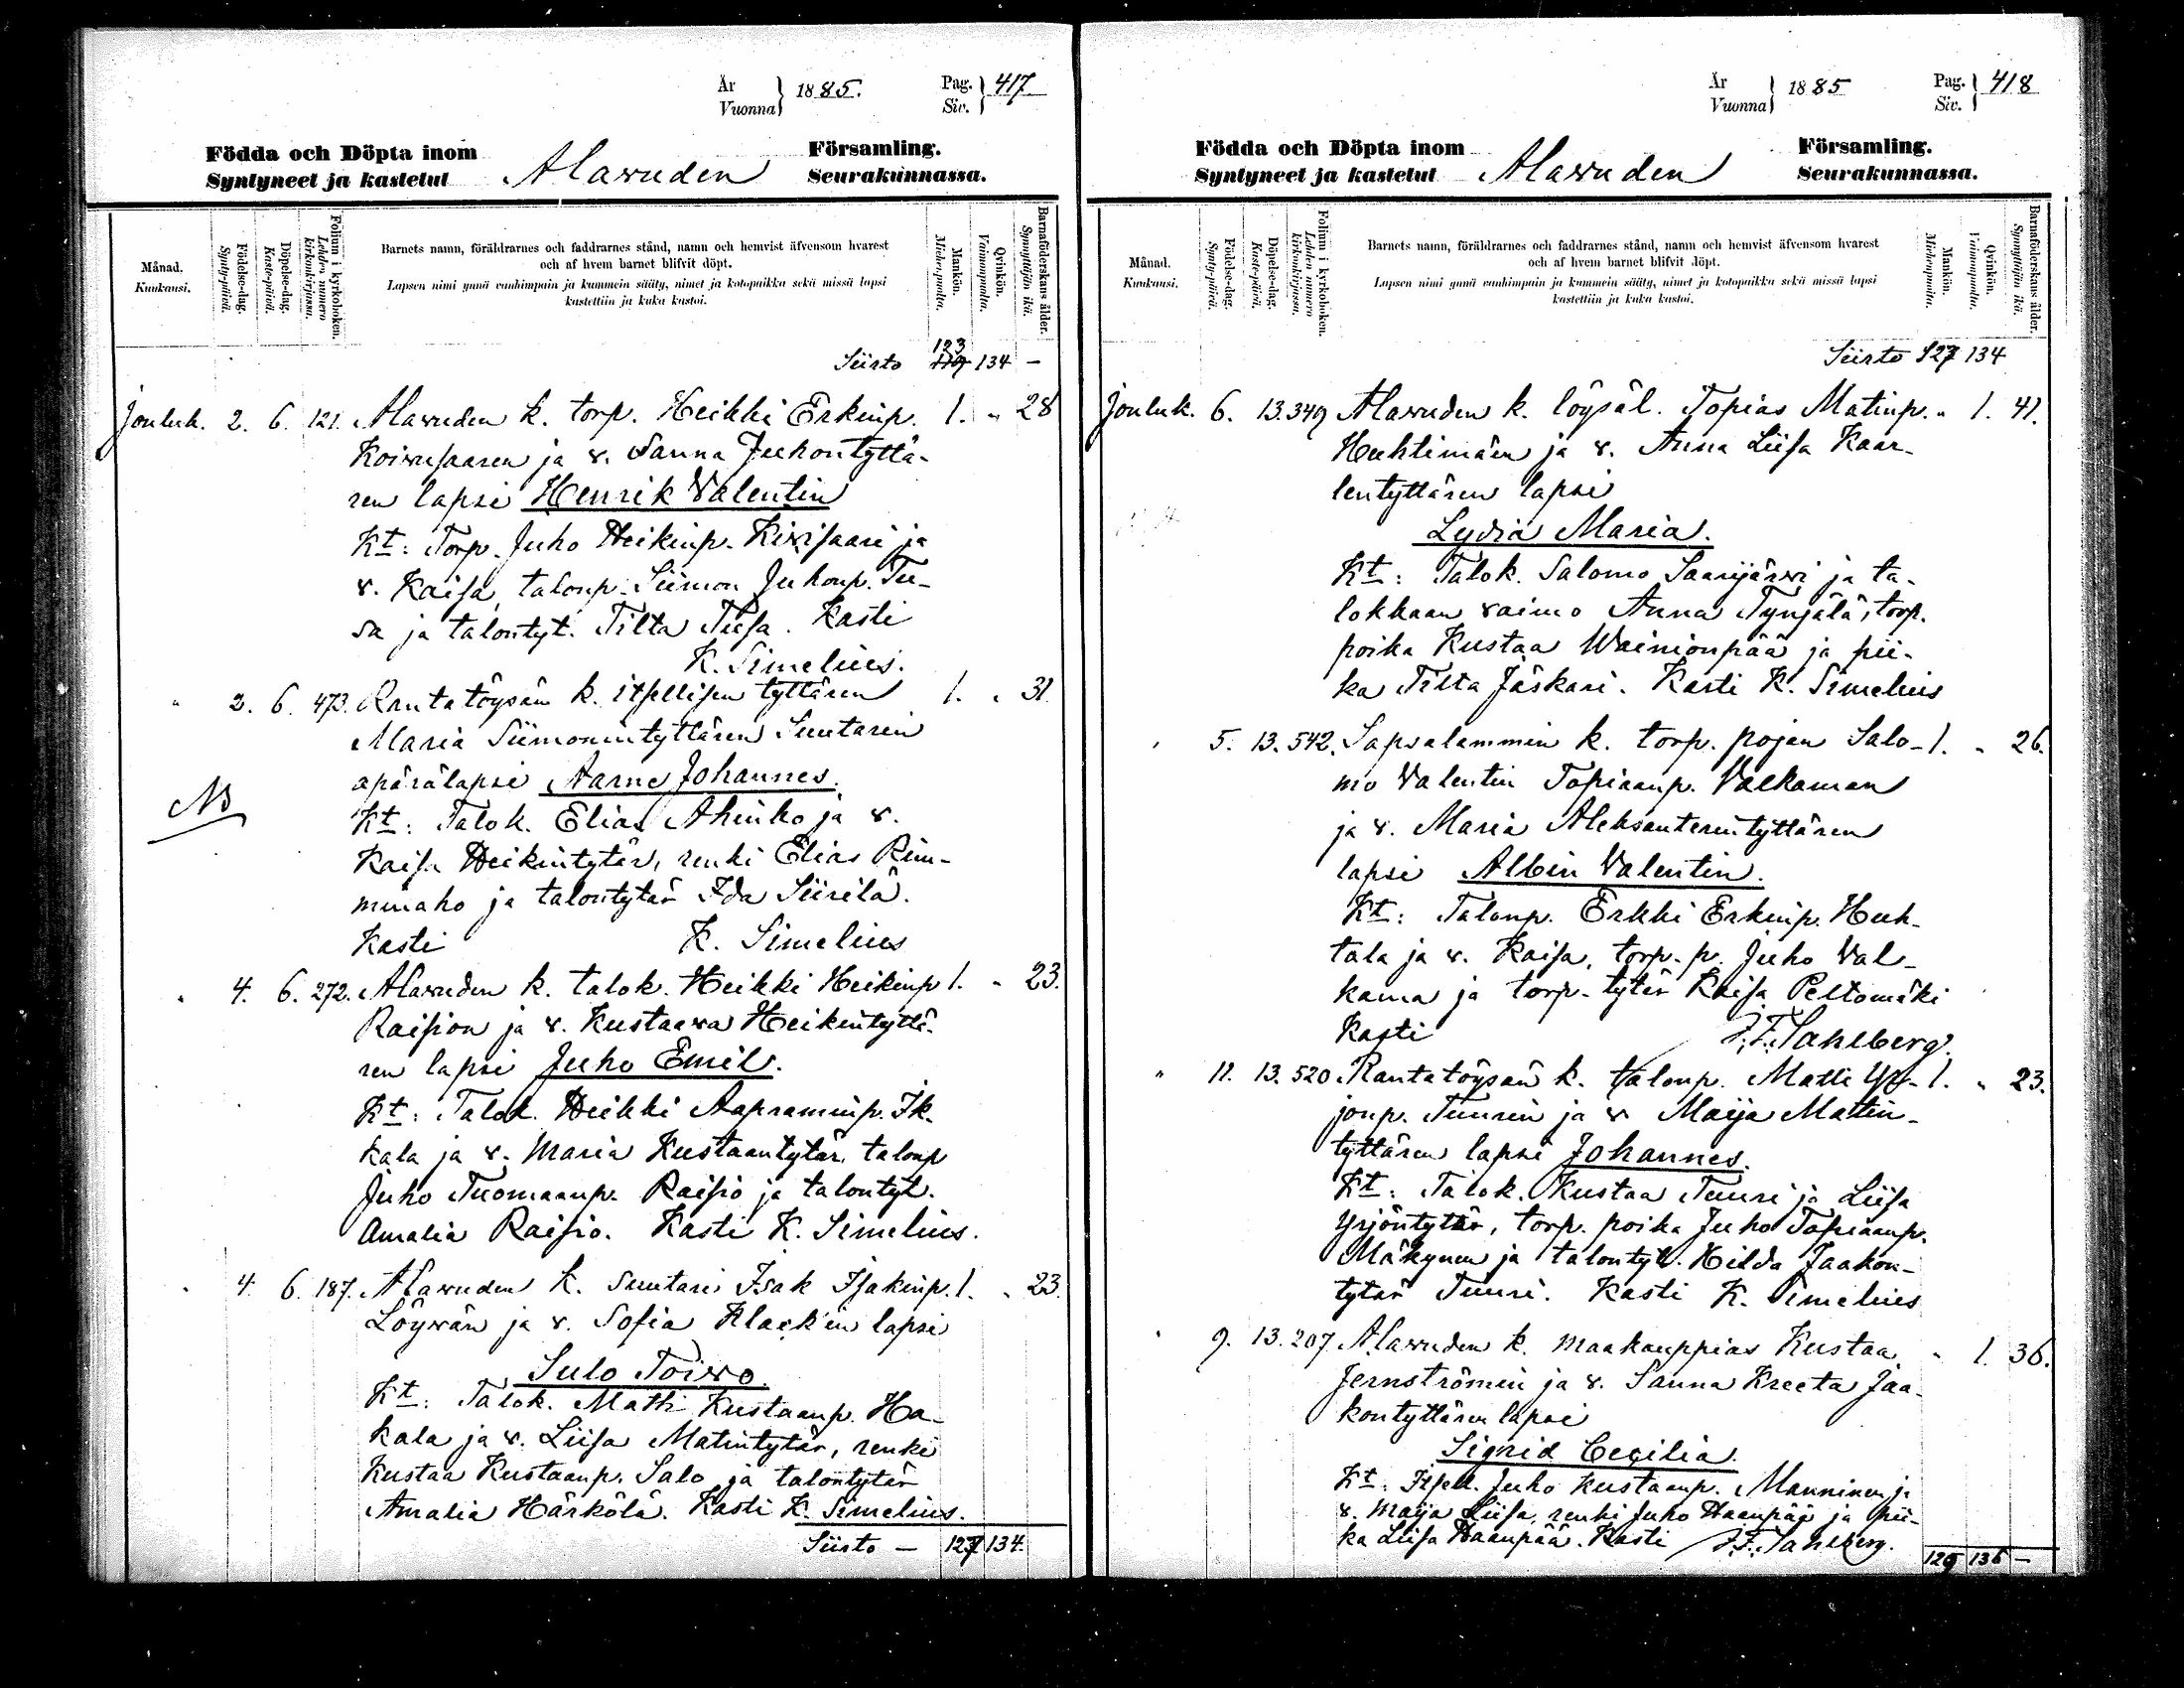 År
Vuonna } 1885.
Pag.
Siv. } 417
Födda och Döpta inom
Syntyneet ja kastetut
Alavuden
Församling.
Seurakunnassa.
Månad.
Kuukausi.
Födelse-dag.
Synty-päivä.
Döpelse-dag.
Kaste-päivä.
Folium i kyrkoboken.
Lehden numero kirkonkirjassa.
Barnets namn, föräldrarnes och faddrarnes stånd, namn och hemvist äfvensom hvarest
och af hvem barnet blifvit döpt.
Lapsen nimi ynnä vanhimpain ja kummein sääty, nimet ja kotopaikka sekä missä lapsi
kastettiin ja kuka kastoi.
Mankön.
Miehenpuolta.
Qvinkön.
Vaimonpuolta.
Barnaföderskans ålder.
Synnyttäjän ikä.
123
Siirto 119 134 —
Jouluk. 2. 6. 121. Alavuden k. torp. Heikki Erkinp. 1. " 28
Koivusaaren ja v. Sanna Juhontyttä-
ren lapsi Henrik Valentin
Kt: Torp. Juho Heikinp. Kivisaari ja
v. Kaisa, talonp. Siimon Juhonp. Tu-
sa ja talontyt. Tilta Tusa. Kasti
K. Simelius.
" 2. 6. 473. Rantatöysän k. itsellisen tyttären 1. " 31
Maria Siimonintyttären Suutarin
apärälapsi Aarne Johannes.
NB
Kt: Talok. Elias Ahinko ja v.
Kaisa Heikintytär, renki Elias Rim-
minaho ja talontytär Ida Siirilä.
Kasti K. Simelius
" 4. 6. 272. Alavuden k. talok. Heikki Heikinp 1. " 23.
Raision ja v. Kustaava Heikintyttä-
ren lapsi Juho Emil.
Kt: Talok. Heikki Aapraminp. Ik-
kala ja v. Maria Kustaantytär, talonp
Juho Tuomaanp. Raisio ja talontyt.
Amalia Raisio. Kasti K. Simelius.
" 4. 6. 187. Alavuden k. suutari Isak Isakinp. 1. " 23.
Löyvän ja v. Sofia Klack'in lapsi
Sulo Toivo.
Kt: Talok. Matti Kustaanp. Ha-
kala ja v. Liisa Matintytär, renki
Kustaa Kustaanp. Salo ja talontytär
Amalia Härkölä. Kasti K. Simelius.
Siirto — 127 134.
År
Vuonna } 1885
Pag.
Siv. } 418
Födda och Döpta inom
Syntyneet ja kastetut
Alavuden
Församling.
Seurakunnassa.
Månad.
Kuukausi.
Födelse-dag.
Synty-päivä.
Döpelse-dag.
Kaste-päivä.
Folium i kyrkoboken.
Lehden numero kirkonkirjassa.
Barnets namn, föräldrarnes och faddrarnes stånd, namn och hemvist äfvensom hvarest
och af hvem barnet blifvit döpt.
Lapsen nimi ynnä vanhimpain ja kummein sääty, nimet ja kotopaikka sekä missä lapsi
kastettiin ja kuka kastoi.
Mankön.
Miehenpuolta.
Qvinkön.
Vaimonpuolta.
Barnaföderskans ålder.
Synnyttäjän ikä.
Siirto 127 134
Jouluk. 6. 13. 349 Alavuden k. löysäl. Topias Matinp. " 1. 41.
Huhtimäen ja v. Anna Liisa Kaar-
lentyttären lapsi
Lydia Maria.
Kt: Talok. Salomo Saarijärvi ja ta-
lokkaan vaimo Anna Tynjälä, torp.
poika Kustaa Wainionpää ja pii-
ka Tilta Jäskari. Kasti K. Simelius
" 5. 13. 542. Sapsalammin k. torp. pojan Salo- 1. " 26.
mo Valentin Topiaanp. Valkaman
ja v. Maria Aleksanterintyttären
lapsi Albin Valentin.
Kt: Talonp. Erkki Erkinp. Huh-
tala ja v. Kaisa, torp. p. Juho Val-
kama ja torp. tytär Kaisa Peltomäki
Kasti J. F. Sahlberg.
" 11. 13. 520 Rantatöysän k. talonp. Matti Yr- 1. " 23.
jönp. Tuurin ja v Maija Matin-
tyttären lapsi Johannes.
Kt: Talok. Kustaa Tuuri ja Liisa
Yrjöntytär, torp. poika Juho Topiaanp.
Mäkynen ja talontyt. Hilda Jaakon-
tytär Tuuri. Kasti K. Simelius
" 9. 13. 207 Alavuden k. maakauppias Kustaa " 1. 36.
Jernströmin ja v. Sanna Kreeta Jaa-
kontyttären lapsi
Sigrid Cecilia.
Kt: Itsell. Juho Kustaanp. Manninen ja
v. Maija Liisa, renki Juho Haanpää ja pii-
ka Liisa Haanpää. Kasti J. F. Sahlberg.
129 136 —